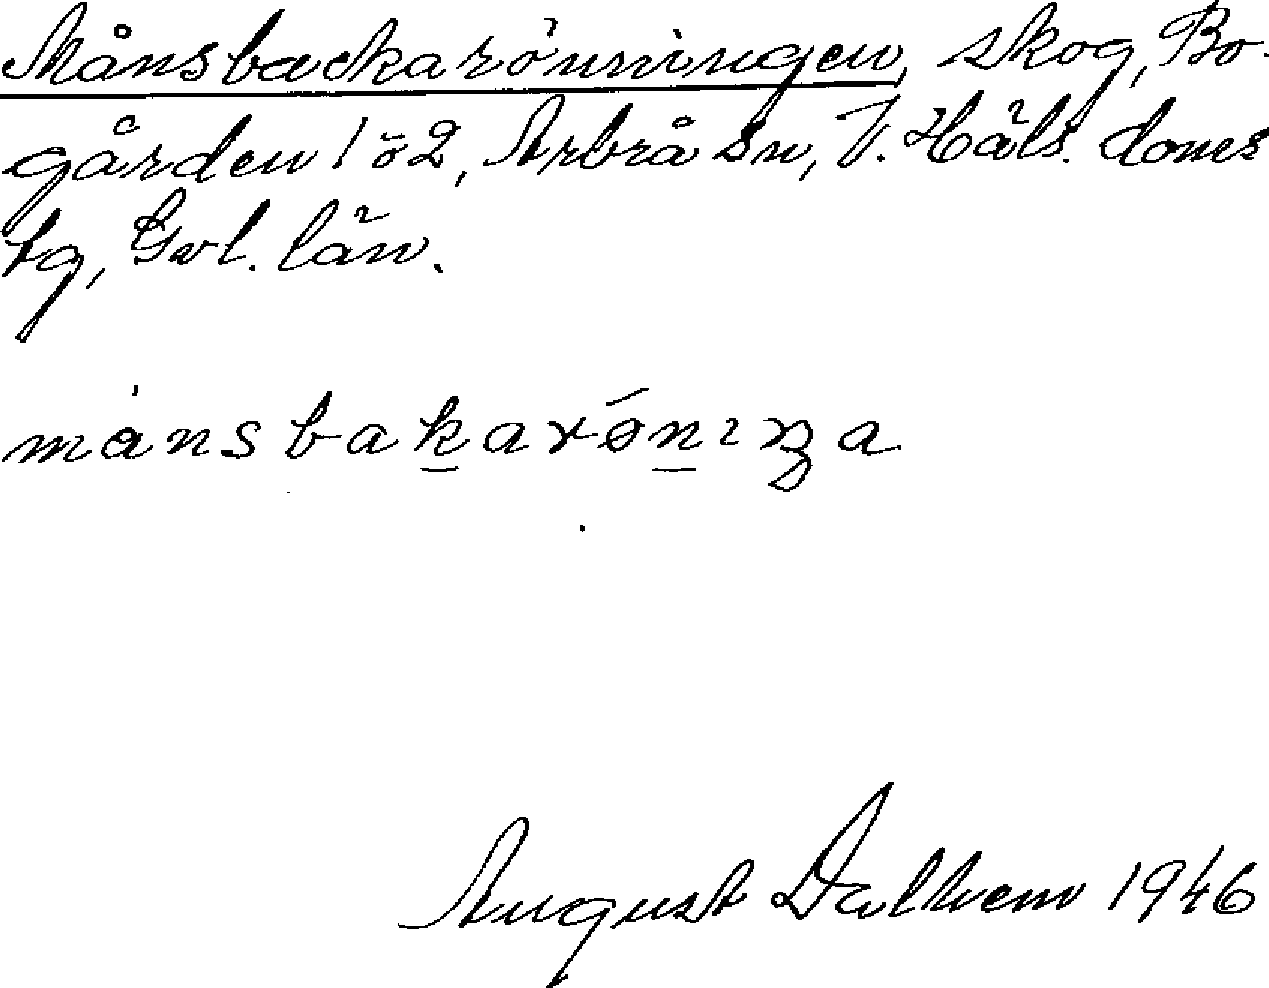 Månsbackarönningen, skog, Bo-
gården 1 o 2, Arbrå sn, V. Häls. doms
tg, Gvl. län.
månsbakarǿnıŋa
August Dalhem 1946